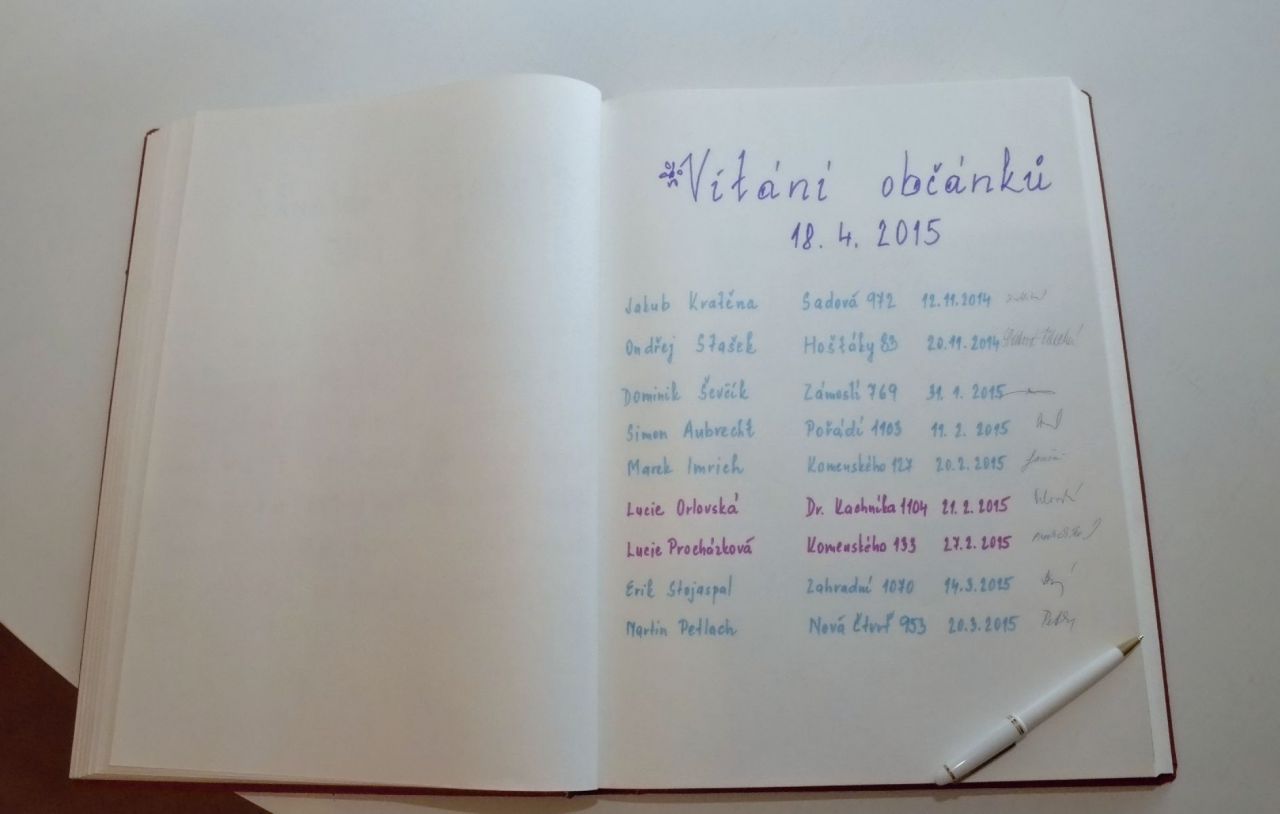 Vítání občánků
18. 4. 2015
Jakub Kratěna Sadová 972 12.11.2014
Ondřej Stašek Hošťáky 83 20.11.2014
Dominik Ševčík Zámostí 769 31. 1. 2015
Simon Aubrecht Pořádí 1103 11. 2. 2015
Marek Imrich Komenského 127 20.2. 2015
Lucie Orlovská Dr. Kachníka 1104 21. 2. 2015
Lucie Procházková Komenského 133 27.2. 2015
Erik Stojaspal Zahradní 1070 14.3.2015
Martin Petlach Nová čtvrť 953 20.3.2015